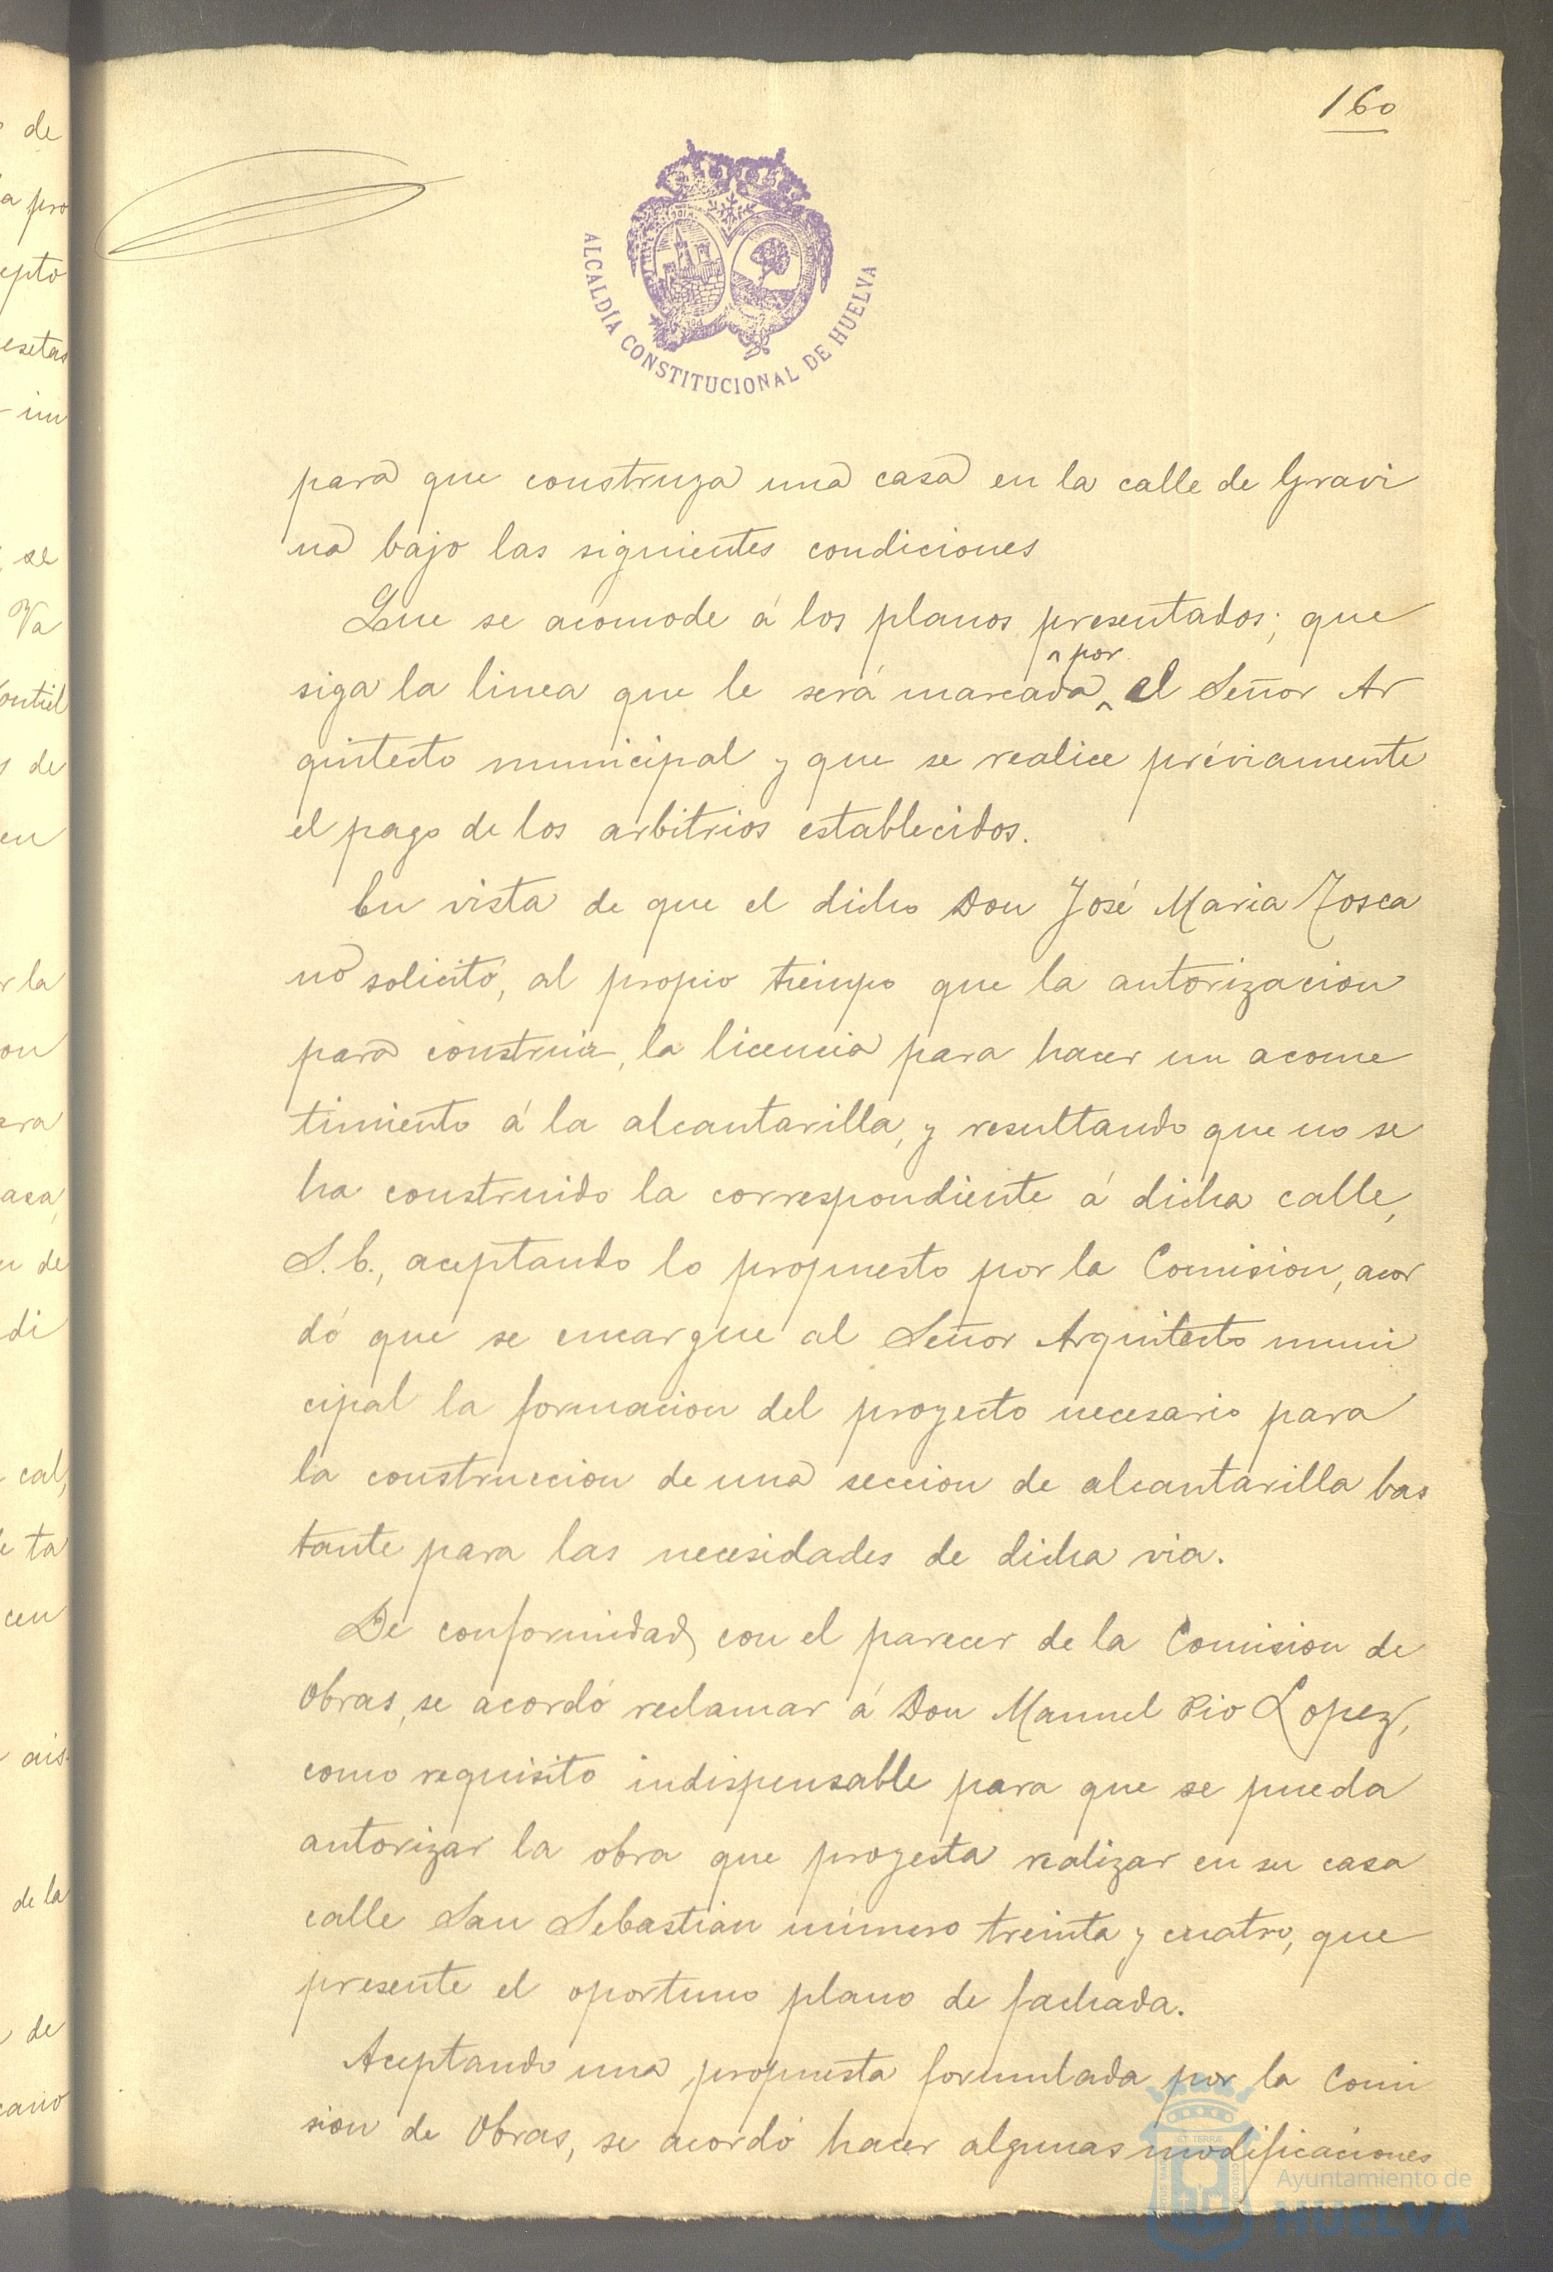 160
ALCALDÍA CONSTITUCIONAL DE HUELVA
para que construya una casa en la calle de Gravi
na bajo las siguientes condiciones
Que se acomode á los planos presentados; que
por
siga la linea que le será marcada el Señor Ar
quitecto municipal y que se realice préviamente
el pago de los arbitrios establecidos.
En vista de que el dicho Don José Maria
no solicitó, al propio tiempo que la autorizacion
para construir, la licencia para hacer un acome
timiento á la alcantarilla, y resultando que no se
ha construido la correspondiente á dicha calle,
S. E., aceptando lo propuesto por la Comision, acor
dó que se encargue al Señor Arquitecto muni
cipal la formacion del proyecto necesario para
la construccion de una seccion de alcantarilla bas
tante para las necesidades de dicha via.
De conformidad con el parecer de la Comision de
Obras, se acordó reclamar á Don Manuel Pio Lopez,
como requisito indispensable para que se pueda
autorizar la obra que proyecta realizar en su casa
calle San Sebastian número treinta y cuatro, que
presente el oportuno plano de fachada.
Aceptando una propuesta formulada por la Comi
sion de Obras, se acordó hacer algunas modificaciones
Ayuntamiento de
HUELVA